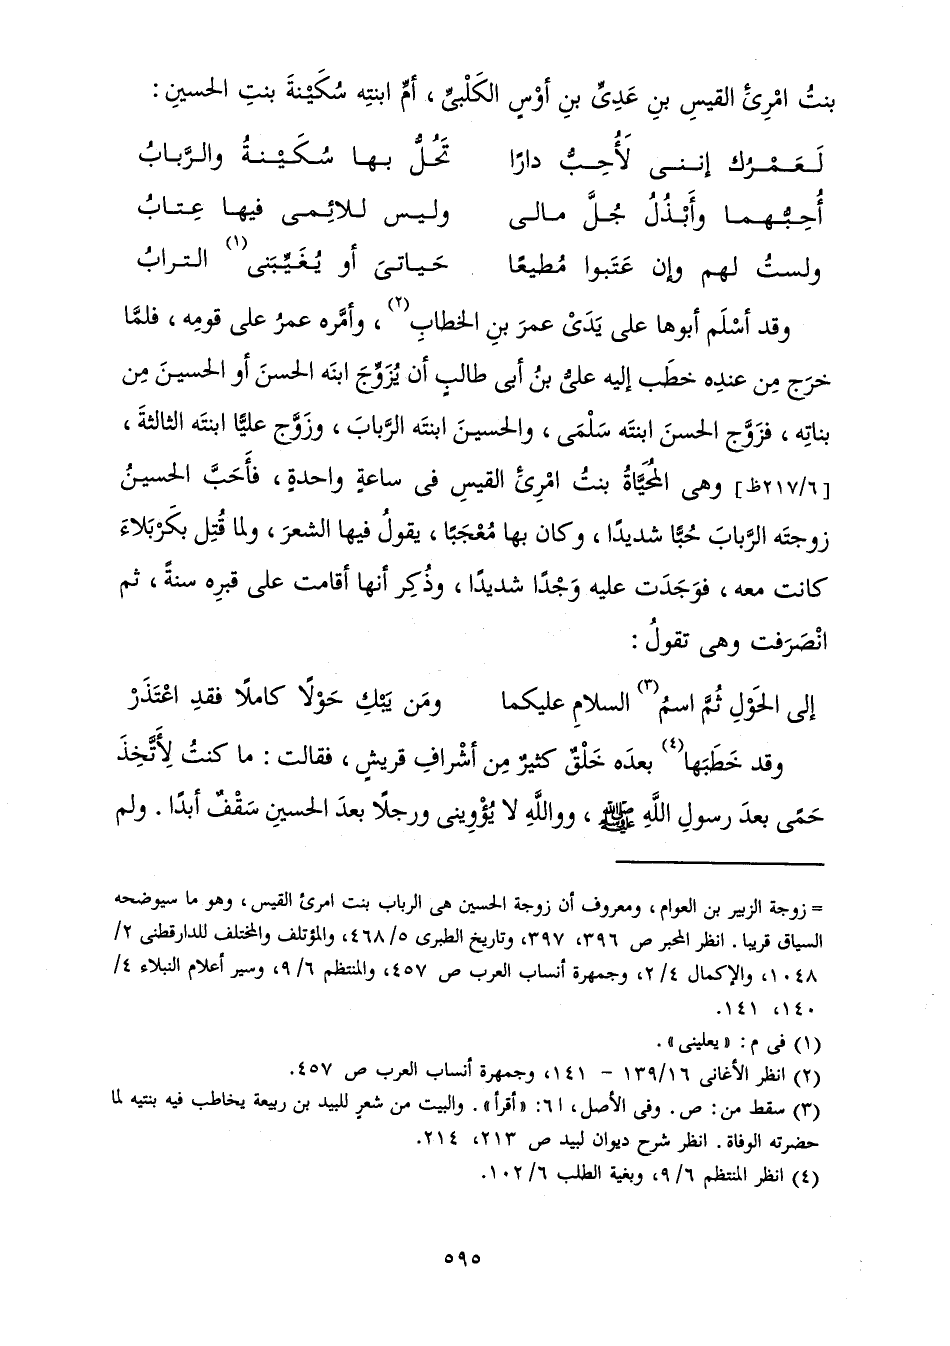 بنتُ امْرِئَ القيسِ بنِ عَدِىِّ بنِ أوْسٍ الكَلْبىِّ ، أمِّ ابنتِه سُكَيْنةَ بنتِ الحسينِ :
لَعَمْرُك إننى لَأُحِبُّ دارًا تَحُلُّ بها سُكَيْنةُ والرَّبابُ
أُحِبُّهما وأَبْذُلُ جُلَّ مالى وليس للائِمى فيها عِتابُ
ولستُ لهم وإن عَتَبوا مُطيعًا حَياتىَ أو يُغَيِّبَنى(١) الترابُ
وقد أسْلَم أبوها على يَدَىْ عمرَ بنِ الخطابِ(٢) ، وأمَّره عمرُ على قومِه ، فلمَّا
خرَج مِن عندِه خطَب إليه علىُّ بنُ أبى طالبٍ أن يُزَوِّجَ ابنَه الحسنَ أو الحسينَ مِن
بناتِه ، فزَوَّج الحسنَ ابنتَه سَلْمَى ، والحسينَ ابنتَه الرَّبابَ ، وزَوَّج عليًّا ابنتَه الثالثةَ ،
[٢١٧/٦ظ] وهى المُحَيَّاةُ بنتُ امْرِئَ القيسِ فى ساعةٍ واحدةٍ ، فأَحَبَّ الحسينُ
زوجتَه الرَّبابَ حُبًّا شديدًا ، وكان بها مُعْجَبًا ، يقولُ فيها الشعرَ ، ولما قُتِل بكَرْبَلاءَ
كانت معه ، فوَجَدَت عليه وَجْدًا شديدًا ، وذُكِر أنها أقامت على قبرِه سنةً ، ثم
انْصَرَفت وهى تقولُ :
إلى الحَوْلِ ثُمَّ اسمُ(٣) السلامِ عليكما ومَن يَبْكِ حَوْلًا كاملًا فقدِ اعْتَذَرْ
وقد خَطَبَها(٤) بعدَه خَلْقٌ كثيرٌ مِن أشْرافِ قريشٍ ، فقالت : ما كنتُ لِأَتَّخِذَ
حَمًى بعدَ رسولِ اللَّهِ ﷺ ، وواللَّهِ لا يُؤْوِينى ورجلًا بعدَ الحسينِ سَقْفٌ أبدًا . ولم
= زوجة الزبير بن العوام ، ومعروف أن زوجة الحسين هى الرباب بنت امرئ القيس ، وهو ما سيوضحه
السياق قريبا . انظر المحبر ص ٣٩٦، ٣٩٧، وتاريخ الطبرى ٥/ ٤٦٨، والمؤتلف والمختلف للدارقطنى ٢/
١٠٤٨، والإكمال ٤/ ٢، وجمهرة أنساب العرب ص ٤٥٧، والمنتظم ٦/ ٩، وسير أعلام النبلاء ٤/
١٤٠، ١٤١.
(١) فى م : «يعلينى» .
(٢) انظر الأغانى ١٦/ ١٣٩ - ١٤١، وجمهرة أنساب العرب ص ٤٥٧.
(٣) سقط من : ص . وفى الأصل ، ا ٦: «أقرأ» . والبيت من شعرٍ للبيد بن ربيعة يخاطب فيه بنتيه لما
حضرته الوفاة . انظر شرح ديوان لبيد ص ٢١٣، ٢١٤.
(٤) انظر المنتظم ٦/ ٩، وبغية الطلب ٦/ ١٠٢.
٥٩٥